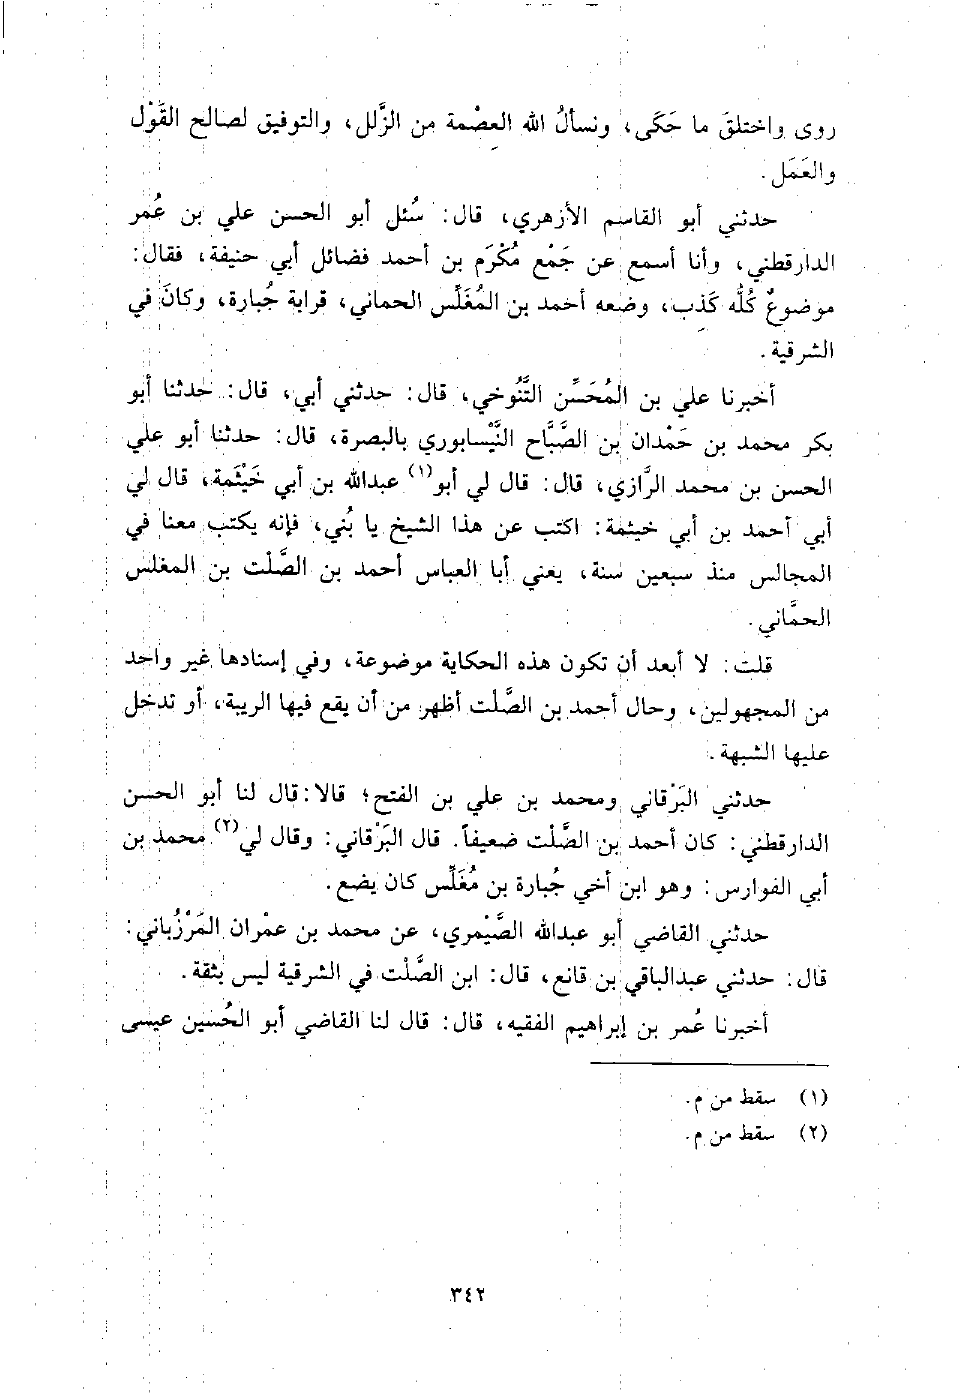 روى واختلقَ ما حَكَى، ونسألُ الله العِصْمة من الزَّلل، والتوفيق لصالح القَوْل
والعَمَل.
حدثني أبو القاسم الأزهري، قال: سُئل أبو الحسن علي بن عُمر
الدارقطني، وأنا أسمع عن جَمْع مُكْرَم بن أحمد فضائل أبي حنيفة، فقال:
موضوعٌ كُلُّه كَذِب، وضعه أحمد بن المُغَلِّس الحماني، قرابة جُبارة، وكانَ في
الشرقية.
أخبرنا علي بن المُحَسِّن التَّنُوخي، قال: حدثني أبي، قال: حدثنا أبو
بكر محمد بن حَمْدان بن الصَّبَّاح النَّيْسابوري بالبصرة، قال: حدثنا أبو علي
الحسن بن محمد الرَّازي، قال: قال لي أبو(١) عبدالله بن أبي خَيْثَمة، قال لي
أبي أحمد بن أبي خيثمة: اكتب عن هذا الشيخ يا بُني، فإنه يكتب معنا في
المجالس منذ سبعين سنة، يعني أبا العباس أحمد بن الصَّلْت بن المغلس
الحمَّاني.
قلت: لا أبعد أن تكون هذه الحكاية موضوعة، وفي إسنادها غير واحد
من المجهولين، وحال أحمد بن الصَّلت أظهر من أن يقع فيها الريبة، أو تدخل
عليها الشبهة.
حدثني البَرْقاني ومحمد بن علي بن الفتح؛ قالا: قال لنا أبو الحسن
الدارقطني: كان أحمد بن الصَّلْت ضعيفاً. قال البَرْقاني: وقال لي(٢) محمد بن
أبي الفوارس: وهو ابن أخي جُبارة بن مُغَلِّس كان يضع.
حدثني القاضي أبو عبدالله الصَّيْمري، عن محمد بن عمْران المَرْزُباني:
قال: حدثني عبدالباقي بن قانع، قال: ابن الصَّلْت في الشرقية ليس بثقة.
أخبرنا عُمر بن إبراهيم الفقيه، قال: قال لنا القاضي أبو الحُسين عيسى
(١) سقط من م.
(٢) سقط من م.
٣٤٢